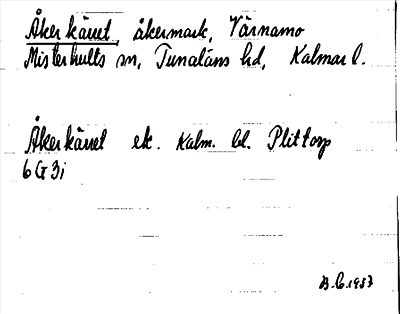 Åkerkärret, åkermark, Värnamo
Misterhults sn, Tunaläns hd, Kalmar l.
Åkerkärret ek. Kalm. bl. Plittorp
6G3i
B.C. 1953